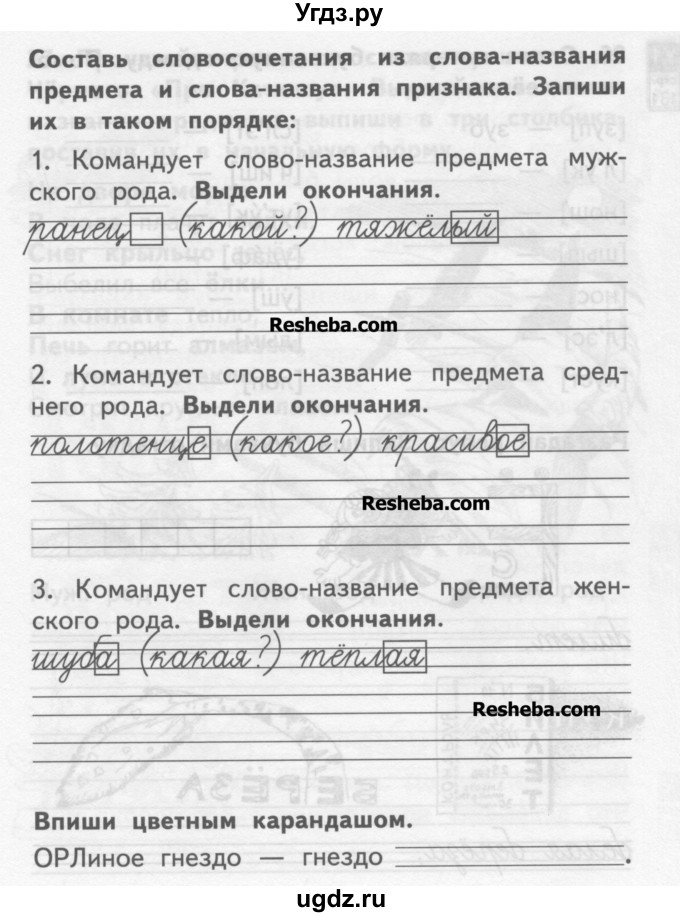 Угдз.ру
Составь словосочетания из слова-названия
предмета и слова-названия признака. Запиши
их в таком порядке:
1. Командует слово-название предмета муж-
ского рода. Выдели окончания.
ранец (какой?) тяжёлый
Resheba.com
2. Командует слово-название предмета сред-
него рода. Выдели окончания.
полотенце (какое?) красивое
Resheba.com
3. Командует слово-название предмета жен-
ского рода. Выдели окончания.
шуба (какая?) тёплая
Resheba.com
Впиши цветным карандашом.
ОРЛиное гнездо — гнездо .
угдз.ru